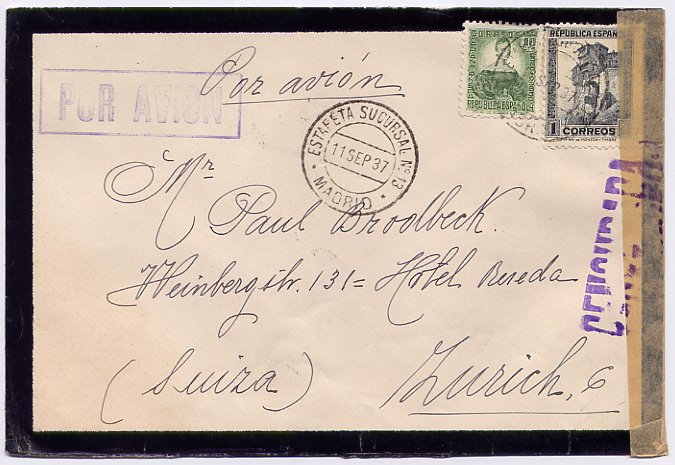 Por avión
POR AVION
10
REPUBLICA ESPAÑ
REPUBLICA ESPAÑ
1 CORREOS
ESTAFETA SUCURSAL Nº 13
11 SEP 37
MADRID
Mr
Paul Brodbeck.
Weinbergstr. 131 = Hôtel Reseda
(Suiza) Zurich, 6
CENSURADA